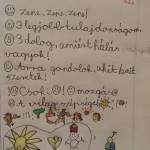 zene, zene, zene!
3 legjobb tulajdonságom
3 dolog, amiért hálás
vagyok!
Arra gondolok, akit
szeretek!
Csoki
mozgás
A világ szépsége